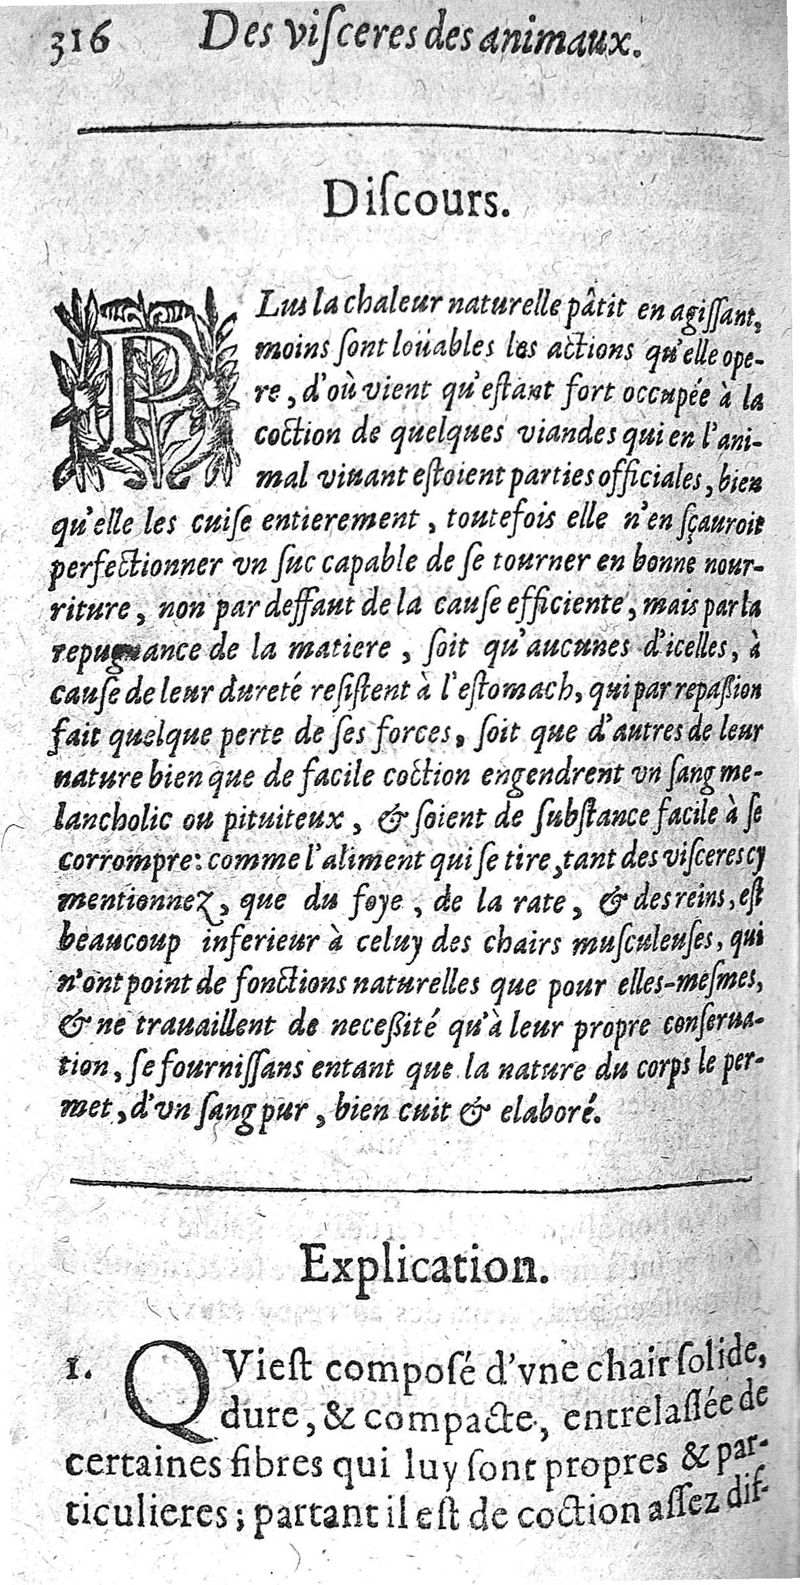 316 Des viſceres des animaux.
Diſcours.
PLus la chaleur naturelle pâtit en agiſſant,
moins ſont loüables les actions qu'elle ope-
re, d'où vient qu'eſtant fort occupée à la
coction de quelques viandes qui en l'ani-
mal viuant eſtoient parties officiales, bien
qu'elle les cuiſe entierement, toutefois elle n'en ſçauroit
perfectionner vn ſuc capable de ſe tourner en bonne nour-
riture, non par deffaut de la cauſe efficiente, mais par la
repugnance de la matiere, ſoit qu'aucunes d'icelles, à
cauſe de leur dureté reſiſtent à l'eſtomach, qui par repaſſion
fait quelque perte de ſes forces, ſoit que d'autres de leur
nature bien que de facile coction engendrent vn ſang me-
lancholic ou pituiteux, & ſoient de ſubſtance facile à ſe
corrompre: comme l'aliment qui ſe tire, tant des viſceres cy
mentionnez, que du foye, de la rate, & des reins, eſt
beaucoup inferieur à celuy des chairs muſculeuſes, qui
n'ont point de fonctions naturelles que pour elles-meſmes,
& ne trauaillent de neceßité qu'à leur propre conſerua-
tion, ſe fourniſſans entant que la nature du corps le per-
met, d'vn ſang pur, bien cuit & elaboré.
Explication.
1. QVieſt compoſé d'vne chair ſolide,
dure, & compacte, entrelaſſée de
certaines fibres qui luy ſont propres & par-
ticulieres; partant il eſt de coction aſſez dif-